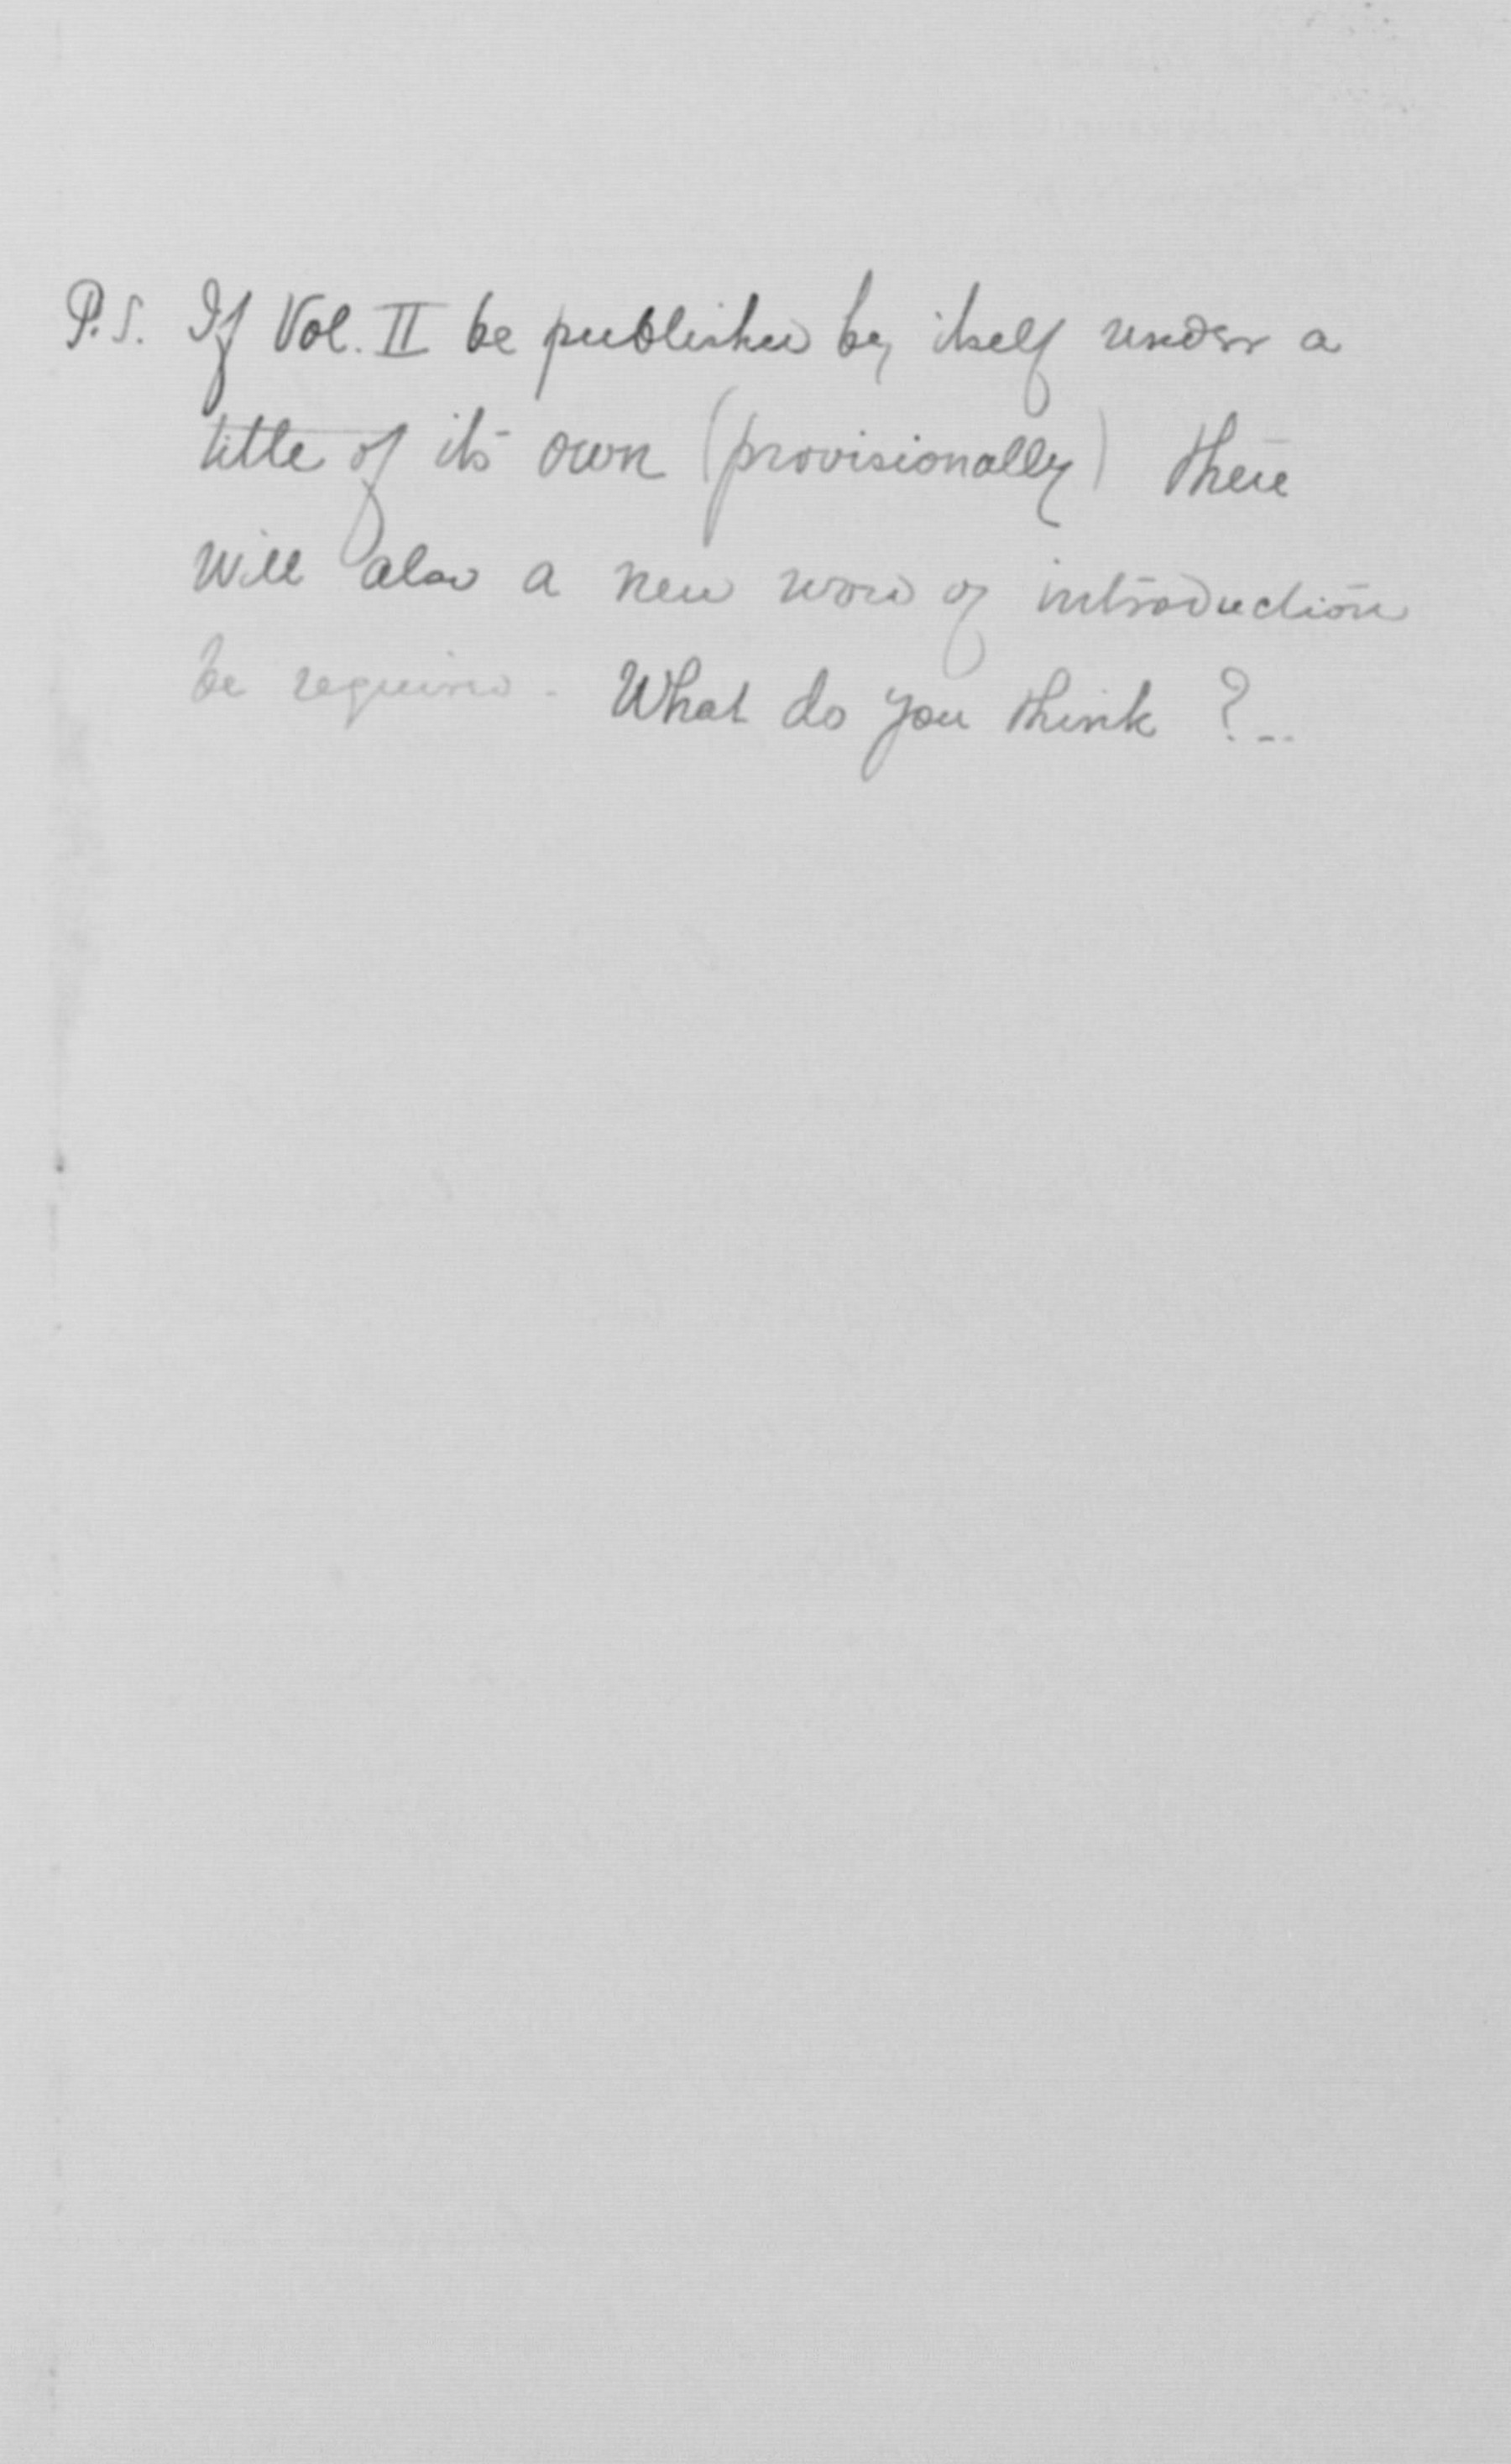 P.S. If Vol. II be published by itself under a
title of its own (provisionally) there
will also a new word of introduction
be required. What do you think ?..